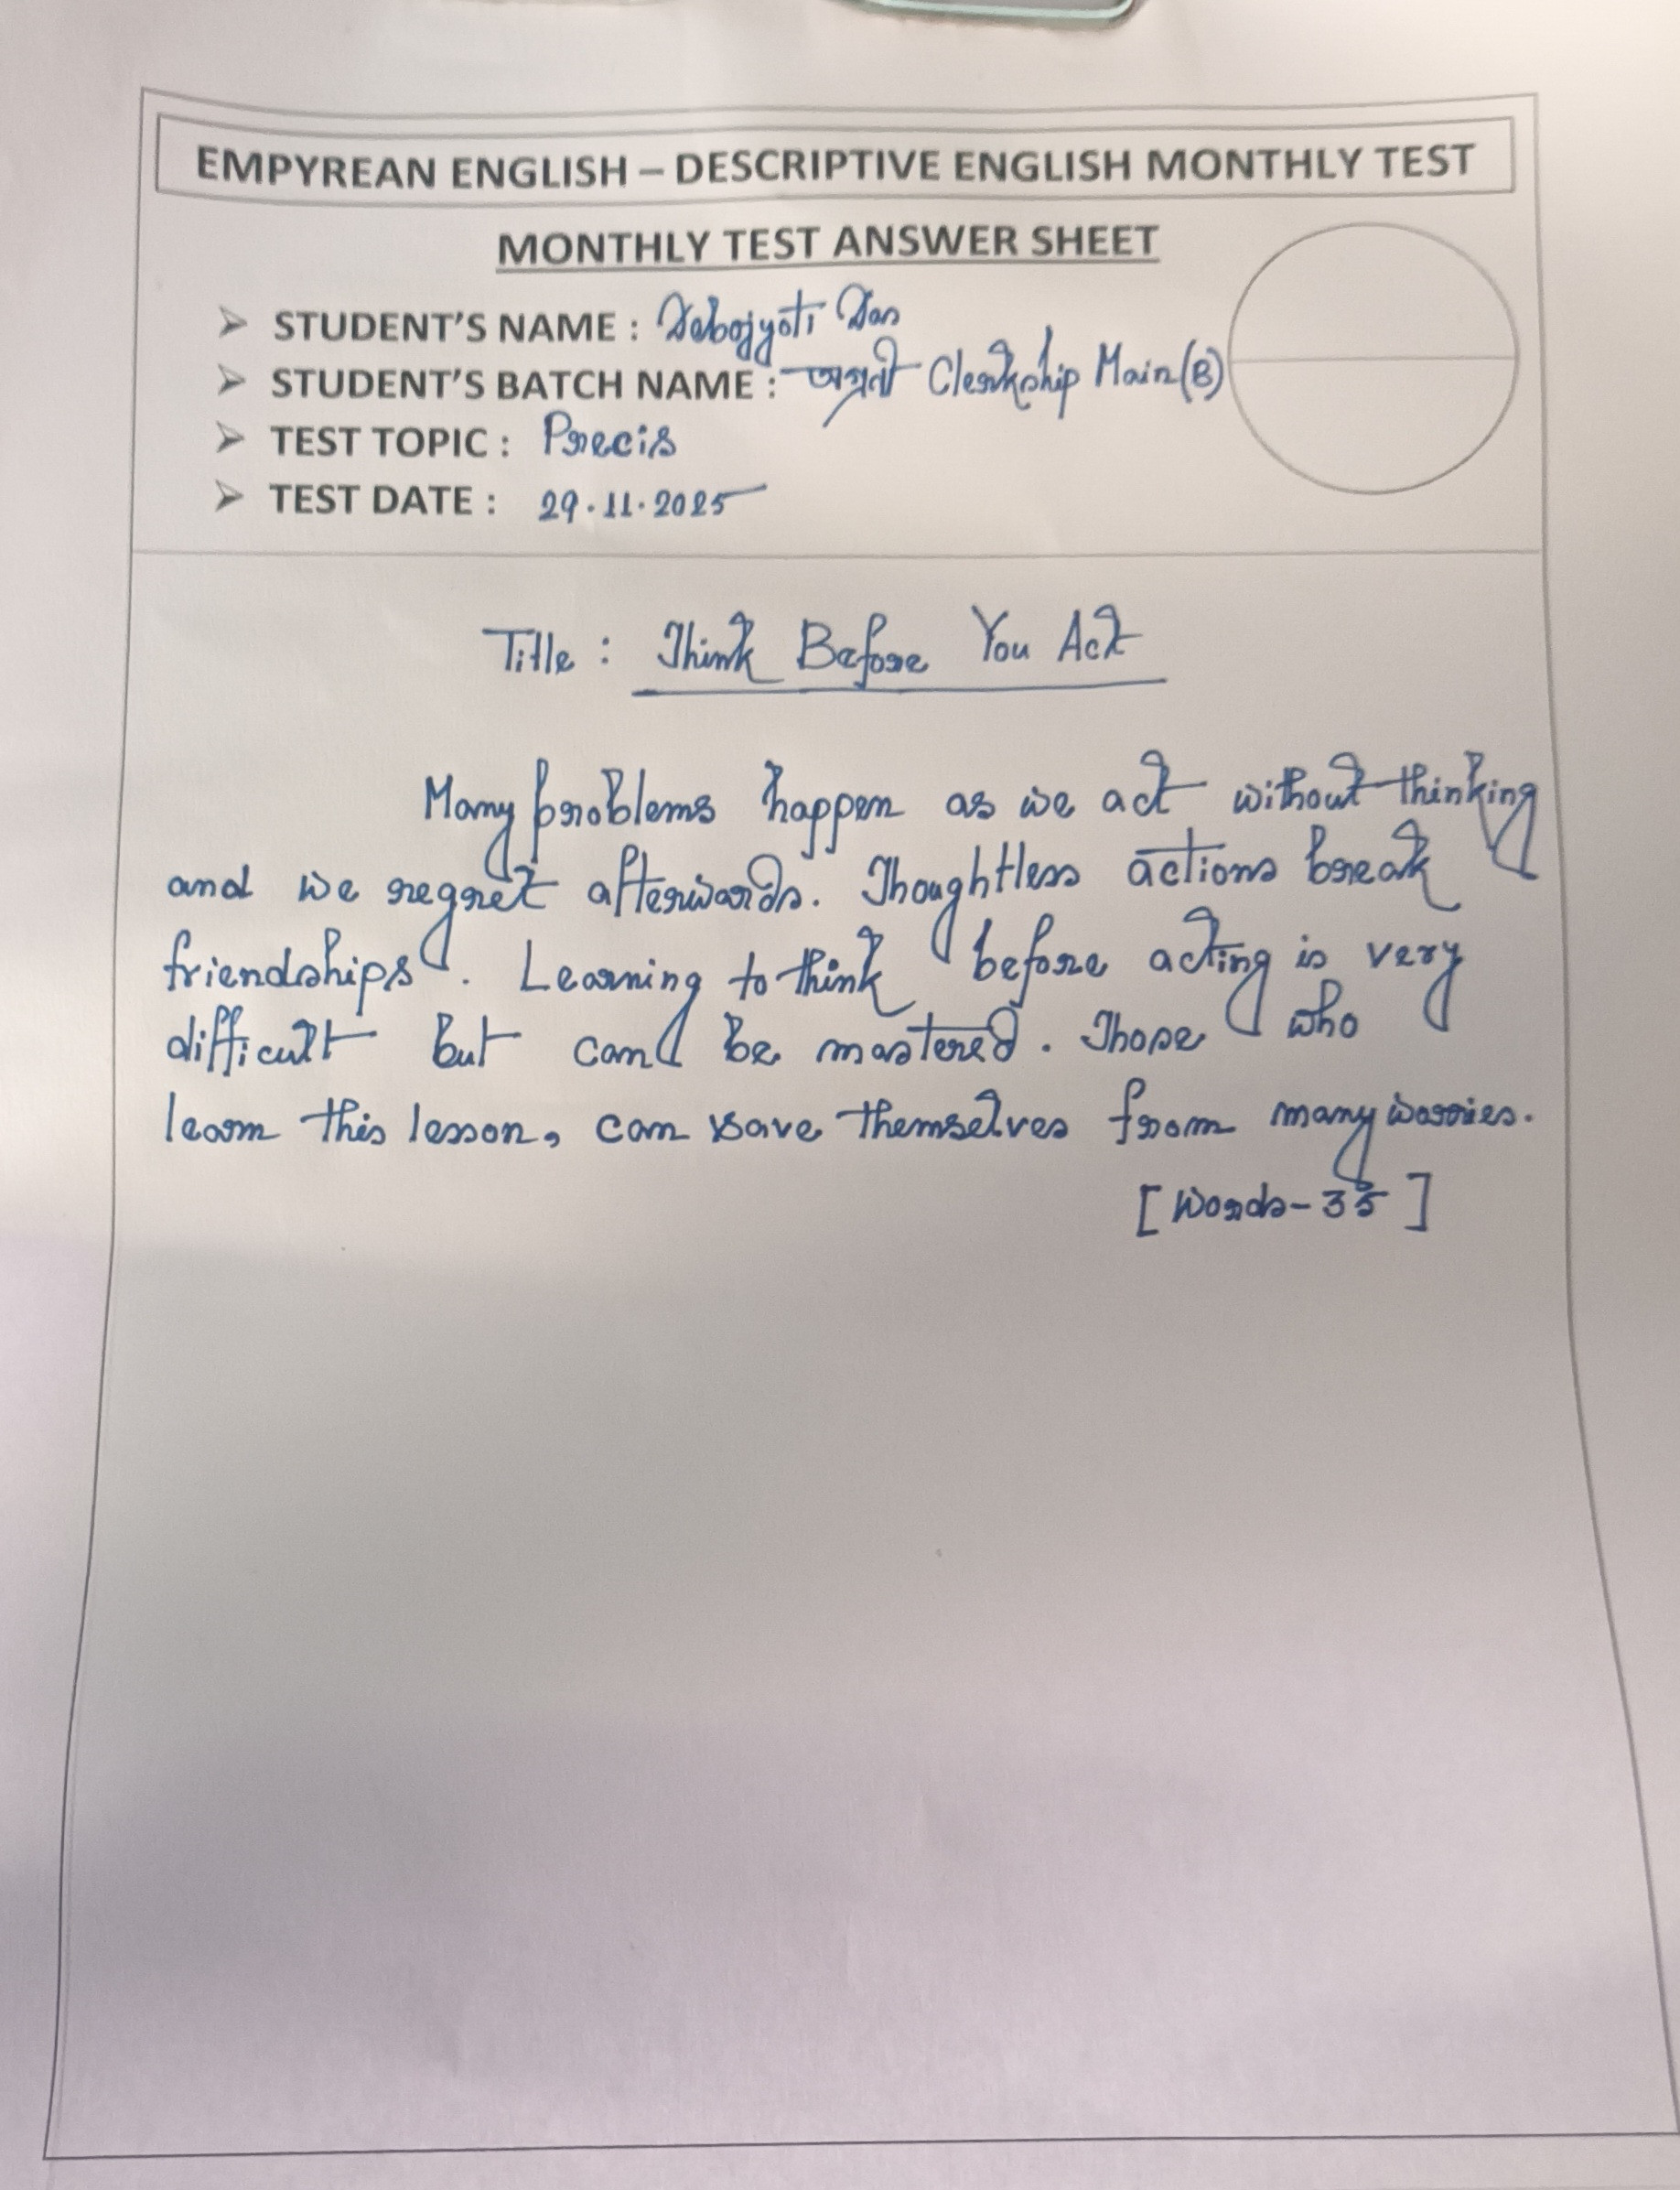 EMPYREAN ENGLISH – DESCRIPTIVE ENGLISH MONTHLY TEST
MONTHLY TEST ANSWER SHEET
➢ STUDENT'S NAME : Debojyoti Das
➢ STUDENT'S BATCH NAME : অগ্রণী Clerkship Main (B)
➢ TEST TOPIC : Precis
➢ TEST DATE : 29.11.2025
Title : Think Before You Act
Many problems happen as we act without thinking
and we regret afterwards. Thoughtless actions break
friendships. Learning to think before acting is very
difficult but can be mastered. Those who
learn this lesson, can save themselves from many worries.
[Words-35]